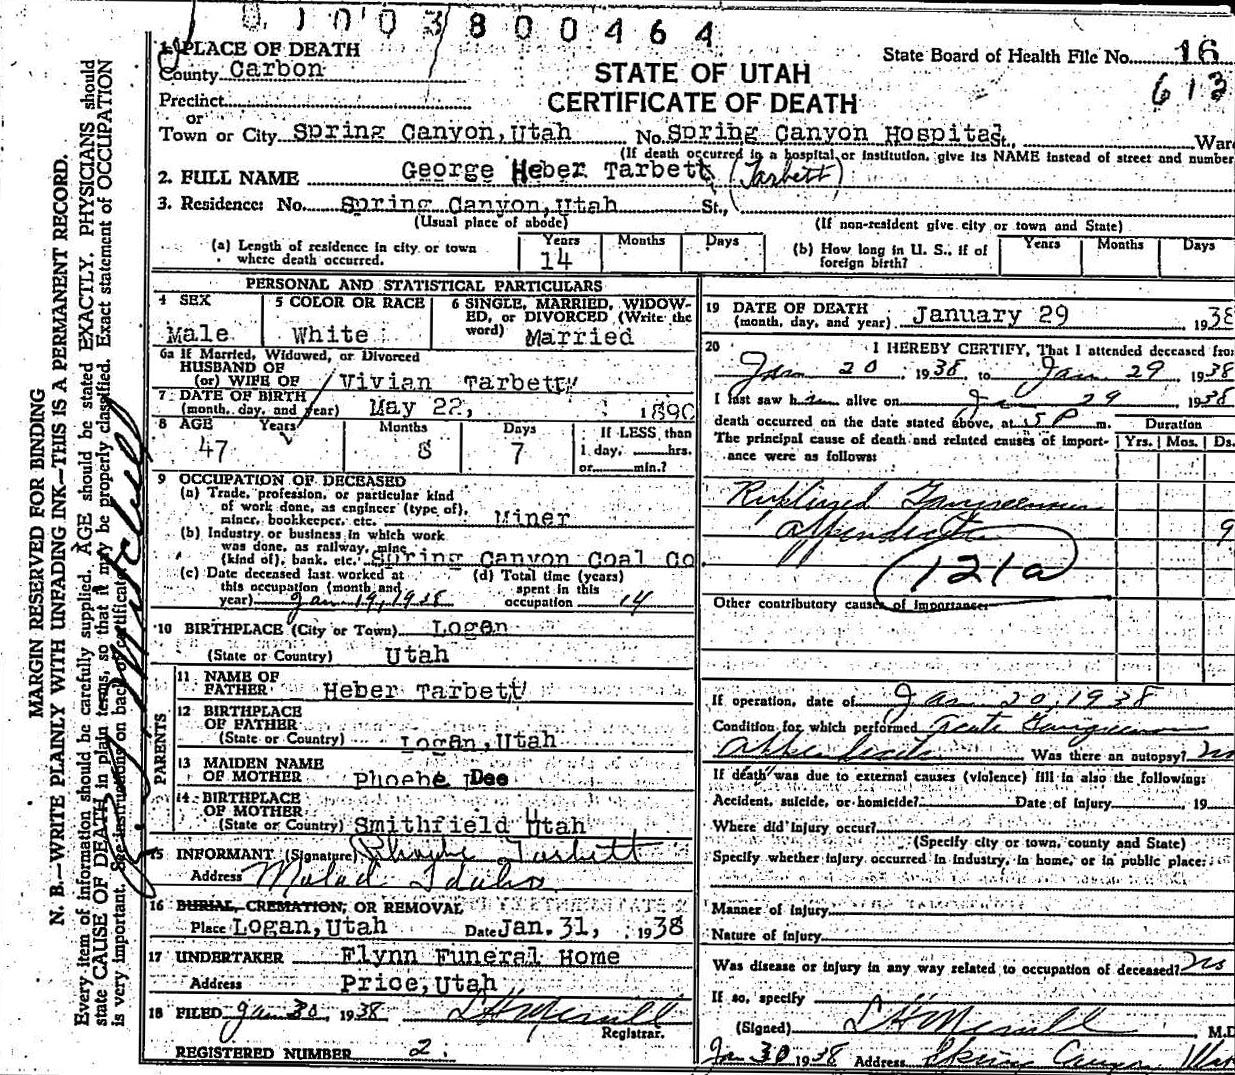 0 1 0 0 3 8 0 0 4 6 4
1 PLACE OF DEATH
State Board of Health File No. 16
613
County Carbon
STATE OF UTAH
CERTIFICATE OF DEATH
Precinct
or
Town or City Spring Canyon, Utah No. Spring Canyon Hospital St., Ward
(If death occurred in a hospital or institution, give its NAME instead of street and number
2. FULL NAME George Heber Tarbett (Tarbett)
3. Residence: No. Spring Canyon, Utah St.,
(Usual place of abode) (If non-resident give city or town and State)
(a) Length of residence in city or town where death occurred. Years 14 Months Days (b) How long in U. S., if of foreign birth? Years Months Days
PERSONAL AND STATISTICAL PARTICULARS
4 SEX Male
5 COLOR OR RACE White
6 SINGLE, MARRIED, WIDOW-
ED, or DIVORCED (Write the
word) Married
6a If Married, Widowed, or Divorced
HUSBAND OF
(or) WIFE OF Vivian Tarbett
7 DATE OF BIRTH
(month, day, and year) May 22, 1890
8 AGE Years 47 Months 8 Days 7 If LESS than
1 day, hrs.
or min.?
9 OCCUPATION OF DECEASED
(a) Trade, profession, or particular kind
of work done, as engineer (type of),
miner, bookkeeper, etc. Miner
(b) Industry or business in which work
was done, as railway, mine
(kind of), bank, etc. Spring Canyon Coal Co.
(c) Date deceased last worked at
this occupation (month and
year) Jan 19, 1938
(d) Total time (years)
spent in this
occupation 14
10 BIRTHPLACE (City or Town) Logan
(State or Country) Utah
PARENTS
11 NAME OF
FATHER Heber Tarbett
12 BIRTHPLACE
OF FATHER
(State or Country) Logan, Utah
13 MAIDEN NAME
OF MOTHER Phoebe Dee
14 BIRTHPLACE
OF MOTHER
(State or Country) Smithfield Utah
15 INFORMANT (Signature) Phoebe Tarbett
Address Malad Idaho
16 BURIAL, CREMATION, OR REMOVAL
Place Logan, Utah Date Jan. 31, 1938
17 UNDERTAKER Flynn Funeral Home
Address Price, Utah
18 FILED Jan 30, 1938 L H Merrill
Registrar.
REGISTERED NUMBER 2.
19 DATE OF DEATH
(month, day, and year) January 29 1938
20 I HEREBY CERTIFY, That I attended deceased from
Jan 20, 1938, to Jan 29 1938
I last saw him alive on Jan 29 1938
death occurred on the date stated above, at 5 P m.
The principal cause of death and related causes of import-
ance were as follows:
Duration
Yrs. Mos. Ds.
Ruptured Gangrenous
appendicitis 9
121a
Other contributory causes of importance:
If operation, date of Jan 20, 1938
Condition for which performed Acute Gangrenous
Appendicitis Was there an autopsy? no
If death was due to external causes (violence) fill in also the following:
Accident, suicide, or homicide? Date of injury , 19
Where did injury occur?
(Specify city or town, county and State)
Specify whether injury occurred in industry, in home, or in public place:
Manner of injury
Nature of injury
Was disease or injury in any way related to occupation of deceased? no
If so, specify
(Signed) L H Merrill M.D
Jan 30 1938 Address Spring Canyon, Utah
MARGIN RESERVED FOR BINDING
N. B.—WRITE PLAINLY WITH UNFADING INK—THIS IS A PERMANENT RECORD.
Every item of information should be carefully supplied. AGE should be stated EXACTLY. PHYSICIANS should
state CAUSE OF DEATH in plain terms, so that it may be properly classified. Exact statement of OCCUPATION
is very important. See instructions on back of certificate.